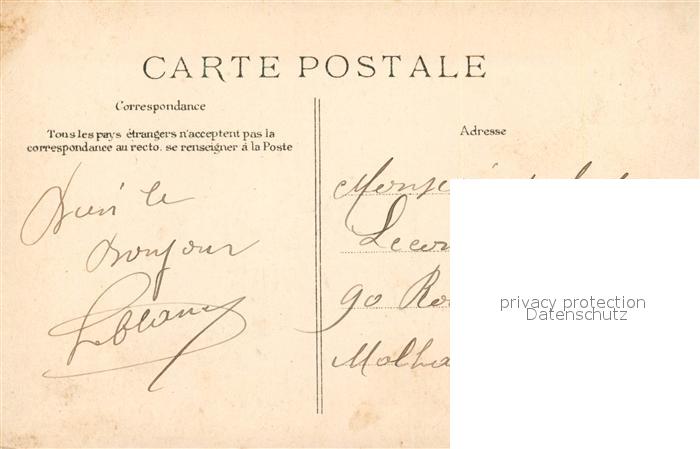 CARTE POSTALE
Correspondance
Tous les pays étrangers n'acceptent pas la
correspondance au recto. se renseigner à la Poste
Adresse
le
Bonjour
Leblanc
90
privacy protection
Datenschutz